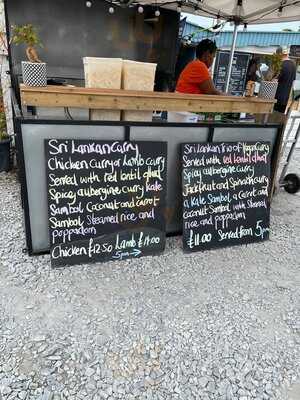 Sri Lankan Curry
Chicken curry or lamb curry
Served with red lentil dhal
Spicy aubergine curry Kale
Sambol Coconut and Carrot
Sambol Steamed rice and
poppadom
Chicken £12.50 Lamb £14.00
5pm
Sri Lankan trio of Vegan curry
Served with red lentil dhal
Spicy aubergine curry,
Jackfruit and Spinach curry
a Kale Sambol, a Carrot and
Coconut Sambol with Steamed
rice and poppadom
£11.00 Served from 5pm